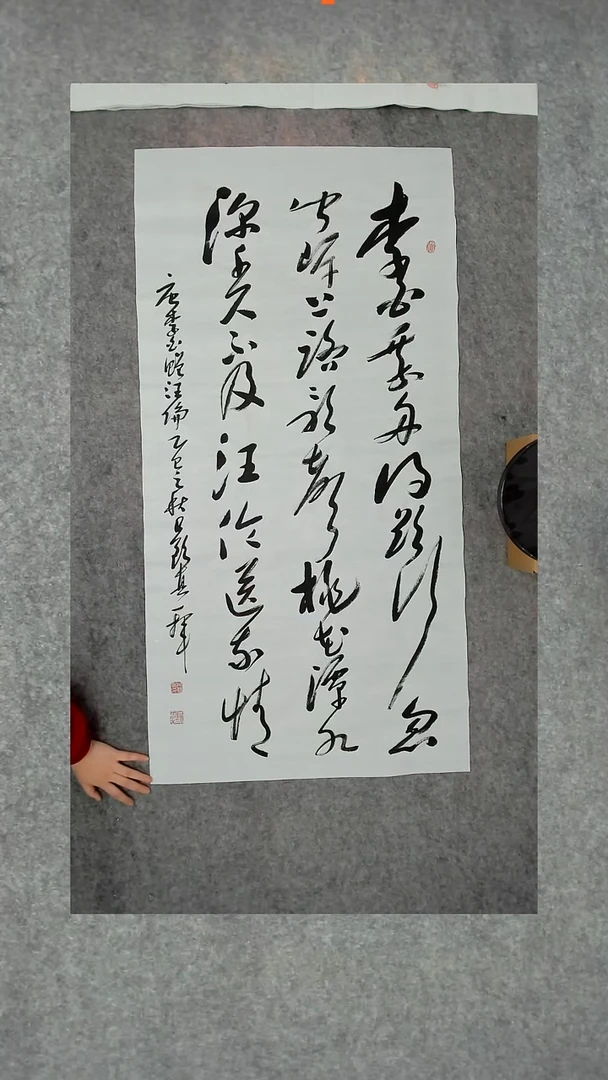 李白乘舟將欲行忽
聞岸上踏歌聲桃花潭水
深千尺不及汪倫送我情
唐李白贈汪倫乙巳之秋